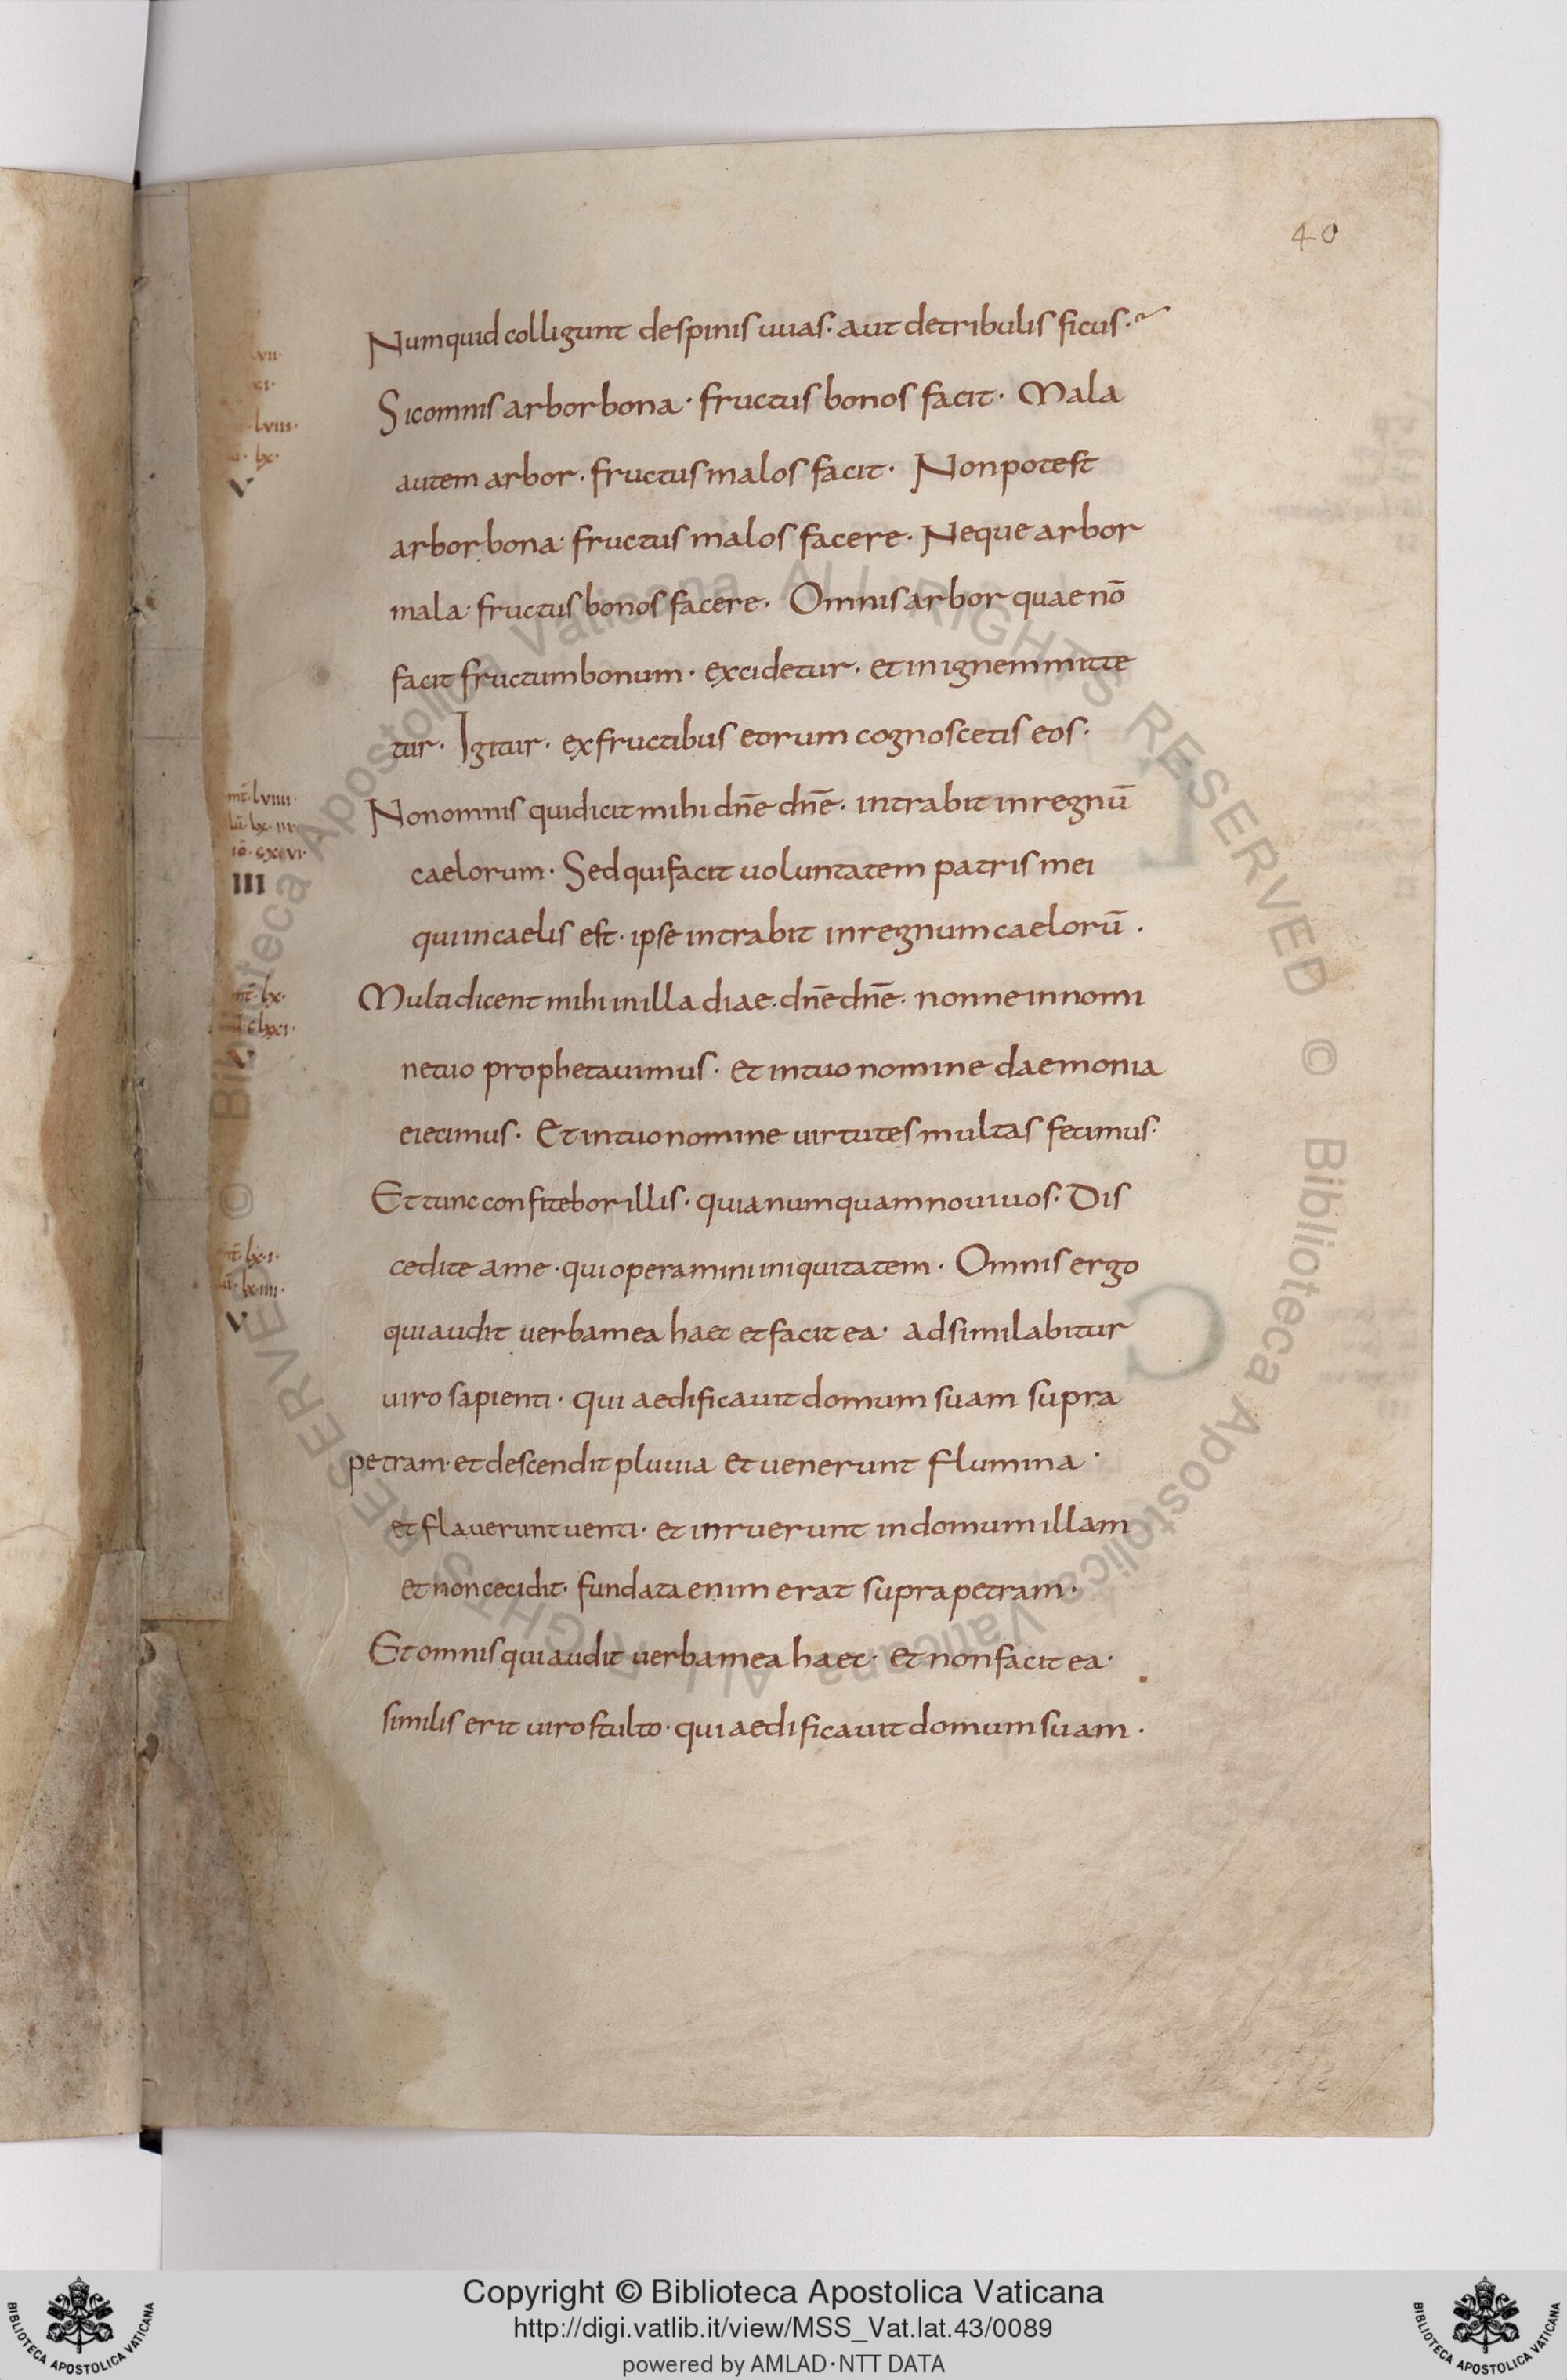 40
Numquid colligunt de spinis uuas· aut de tribulis ficus·
Sic omnis arbor bona· fructus bonos facit· Mala
autem arbor· fructus malos facit· Non potest
arbor bona· fructus malos facere· Neque arbor
mala· fructus bonos facere· Omnis arbor quae nō
facit fructum bonum· excidetur· et in ignem mitte
tur· Igitur· ex fructibus eorum cognoscetis eos·
Non omnis qui dicit mihi dn̄e dn̄e· intrabit in regnū
caelorum· Sed qui facit uoluntatem patris mei
qui in caelis est· ipse intrabit in regnum caelorū·
Multi dicent mihi in illa diae· dn̄e dn̄e· nonne in nomi
ne tuo prophetauimus· et in tuo nomine daemonia
eiecimus· Et in tuo nomine uirtutes multas fecimus·
Et tunc confitebor illis· quia numquam noui uos· Dis
cedite a me· qui operamini iniquitatem· Omnis ergo
qui audit uerba mea haec et facit ea· adsimilabitur
uiro sapienti· qui aedificauit domum suam supra
petram· et descendit pluuia et uenerunt flumina·
et flauerunt uenti· et inruerunt in domum illam
et non cecidit· fundata enim erat supra petram·
Et omnis qui audit uerba mea haec· et non facit ea·
similis erit uiro stulto· qui aedificauit domum suam·
lviii·
lx·
V
mt̄· lviiii·
lū· lx·iii·
iō· cxvi·
III
mt̄· lx·
V
mt̄· lx·i·
lū· lx·iiii·
V
© Biblioteca Apostolica Vaticana ALL RIGHTS RESERVED © Biblioteca Apostolica Vaticana ALL RIGHTS RESERVED
BIBLIOTECA APOSTOLICA VATICANA
Copyright © Biblioteca Apostolica Vaticana
http://digi.vatlib.it/view/MSS_Vat.lat.43/0089
powered by AMLAD·NTT DATA
BIBLIOTECA APOSTOLICA VATICANA